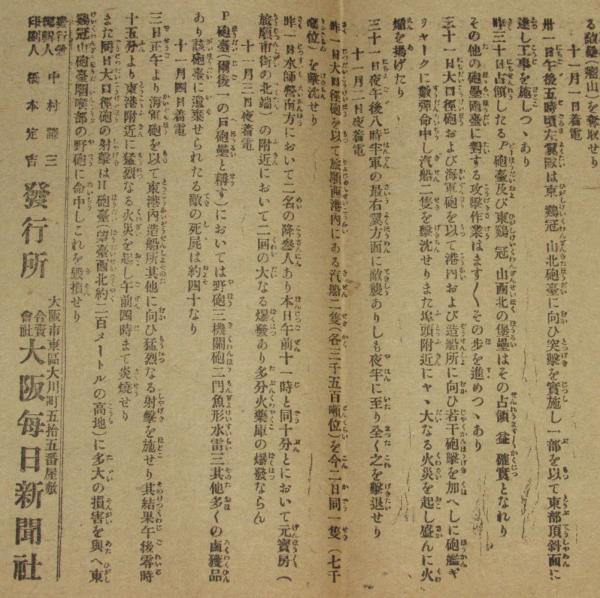 る敵壘(龍山)を奪取せり
十一月一日着電
卅一日午後五時頃左翼隊は東鷄冠山北砲臺に向ひ突擊を實施し一部を以て東部頂斜面に
達し工事を施しつゝあり
昨三十日占領したるP砲臺及び東鷄冠山西北の堡壘はその占領益確實となれり
その他の砲壘砲臺に對する攻擊作業はます〱その步を進めつゝあり
三十一日大口徑砲および海軍砲を以て港內および造船所に向ひ若干砲擊を加へしに砲艦ギ
リヤークに數彈命中し汽船二隻を擊沈せりまた埠頭附近にヤヽ大なる火災を起し盛んに火
焰を揚げたり
十一月二日夜着電
三十一日夜午後八時半軍の最右翼方面に敵襲ありしも夜半に至り全く之を擊退せり
昨一日大口徑砲を以て旅順西港內にある汽船二隻(各三千五百噸位)を今二日同一隻(七千
噸位)を擊沈せり
昨一日水師營南方において二名の降參人あり本日午前十一時と同十分とにおいて元寶房(
旅順市街の北端)の附近において二回の大なる爆發あり多分火藥庫の爆發ならん
十一月三日夜着電
P砲臺(爾後一の戶砲壘と稱す)においては野砲三機關砲二門魚形水雷三其他多くの鹵獲品
あり該砲臺に遺棄せられたる敵の死屍は約四十なり
十一月四日着電
三日正午より海軍砲を以て東港內造船所其他に向ひ猛烈なる射擊を施せり其結果午後零時
十五分より東港附近に猛烈なる火災を起し午前四時まで炎燒せり
また同日大口徑砲の射擊はH砲臺(望臺西北約二百メートルの高地)に多大の損害を與へ東
鷄冠山砲臺咽喉部の野砲に命中しこれを顚覆せり
中村謙三
印刷人 橋本定吉
發行所
大阪市東區大川町五拾五番屋敷
合資會社 大阪每日新聞社